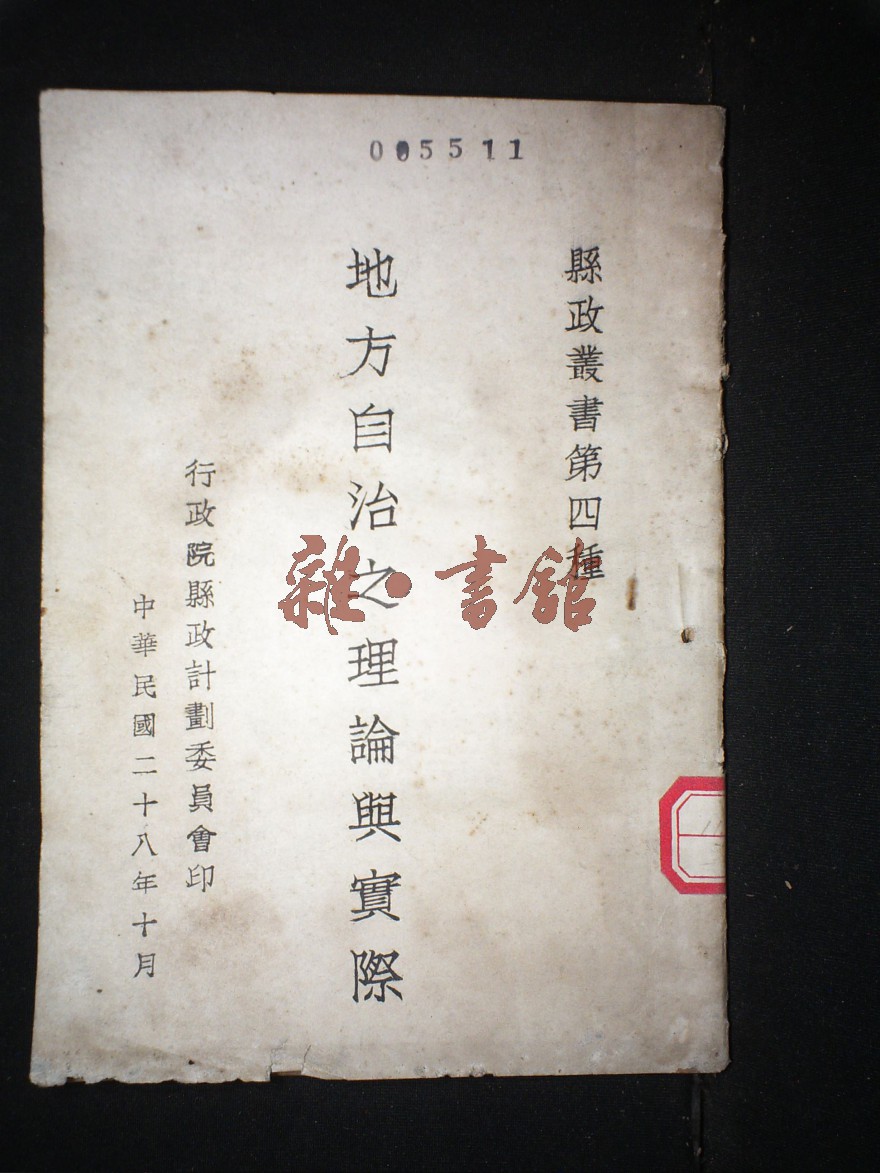 005511
縣政叢書第四種
地方自治之理論與實際
行政院縣政計劃委員會印
中華民國二十八年十月
雜·書館